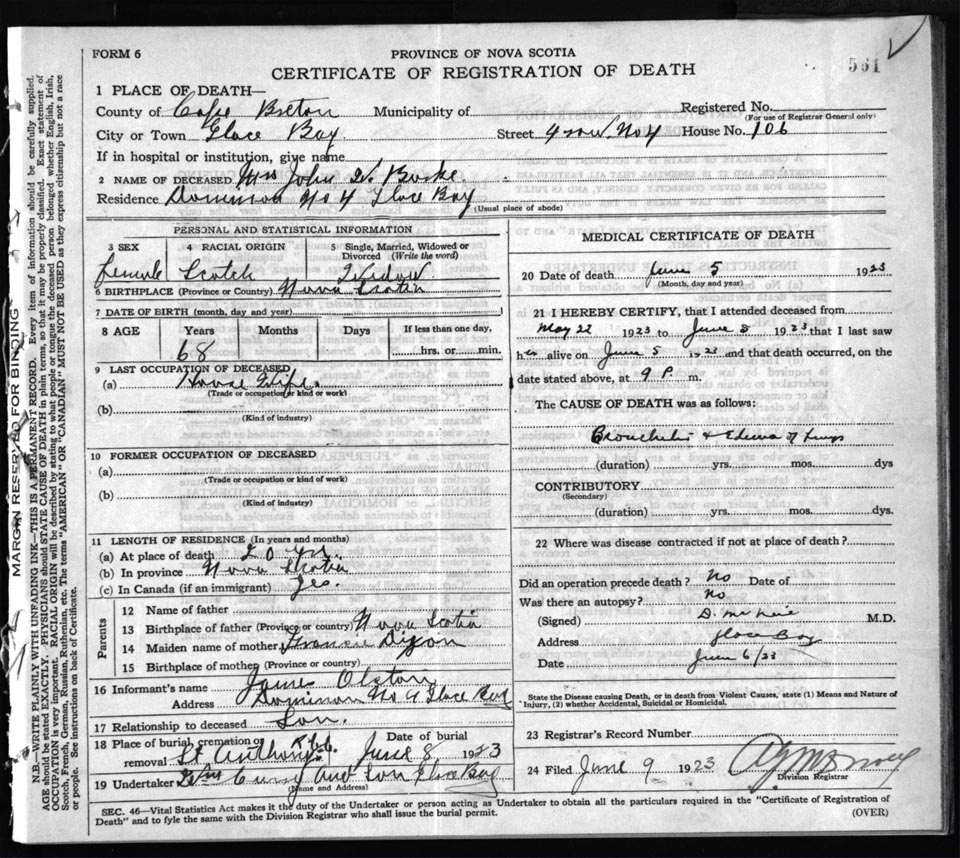 FORM 6
PROVINCE OF NOVA SCOTIA
561
CERTIFICATE OF REGISTRATION OF DEATH
1 PLACE OF DEATH—
County of Cape Breton Municipality of Registered No.
(For use of Registrar General only)
City or Town Glace Bay Street 4 row No 4 House No. 106
If in hospital or institution, give name
2 NAME OF DECEASED Mrs John D. Burke
Residence Dominion No 4 Glace Bay
(Usual place of abode)
PERSONAL AND STATISTICAL INFORMATION
3 SEX 4 RACIAL ORIGIN 5 Single, Married, Widowed or Divorced (Write the word)
Female Scotch Widow
6 BIRTHPLACE (Province or Country) Nova Scotia
7 DATE OF BIRTH (month, day and year)
8 AGE Years Months Days If less than one day,
68 hrs. or min.
9 LAST OCCUPATION OF DECEASED
(a) House Wife
(Trade or occupation or kind of work)
(b)
(Kind of industry)
10 FORMER OCCUPATION OF DECEASED
(a)
(Trade or occupation or kind of work)
(b)
(Kind of industry)
11 LENGTH OF RESIDENCE (In years and months)
(a) At place of death 20 yrs.
(b) In province Nova Scotia
(c) In Canada (if an immigrant) yes
Parents
12 Name of father
13 Birthplace of father (Province or country) Nova Scotia
14 Maiden name of mother Dixon
15 Birthplace of mother (Province or country)
16 Informant's name James Olston
Address Dominion No 4 Glace Bay
17 Relationship to deceased Son.
18 Place of burial, cremation or removal St Anthony's Date of burial June 8 1923
19 Undertaker Curry and Son Glace Bay
(Name and Address)
MEDICAL CERTIFICATE OF DEATH
20 Date of death June 5 1923
(Month, day and year)
21 I HEREBY CERTIFY, that I attended deceased from
May 22 1923 to June 5 1923 that I last saw
her alive on June 5 1923 and that death occurred, on the
date stated above, at 9 P. m.
The CAUSE OF DEATH was as follows:
Bronchitis + Edema of lungs
(duration) yrs. mos. dys
CONTRIBUTORY
(Secondary)
(duration) yrs. mos. dys.
22 Where was disease contracted if not at place of death?
Did an operation precede death? No Date of
Was there an autopsy? No
(Signed) M.D.
Address Glace Bay
Date June 6/23
State the Disease causing Death, or in death from Violent Causes, state (1) Means and Nature of
Injury, (2) whether Accidental, Suicidal or Homicidal.
23 Registrar's Record Number
24 Filed June 9 1923
Division Registrar
SEC. 46—Vital Statistics Act makes it the duty of the Undertaker or person acting as Undertaker to obtain all the particulars required in the "Certificate of Registration of
Death" and to fyle the same with the Division Registrar who shall issue the burial permit.
(OVER)
MARGIN RESERVED FOR BINDING
N.B.—WRITE PLAINLY WITH UNFADING INK—THIS IS A PERMANENT RECORD. Every item of information should be carefully supplied.
AGE should be stated EXACTLY. PHYSICIANS should STATE CAUSE OF DEATH in plain terms, so that it may be properly classified. Exact statement of
OCCUPATION is very important. RACIAL ORIGIN will be described by stating to what people or tongue the deceased person belonged whether English, Irish,
Scotch, French, German, Russian, Ruthenian, etc. The terms "AMERICAN" OR "CANADIAN" MUST NOT BE USED as they express citizenship but not a race
or people. See instructions on back of Certificate.